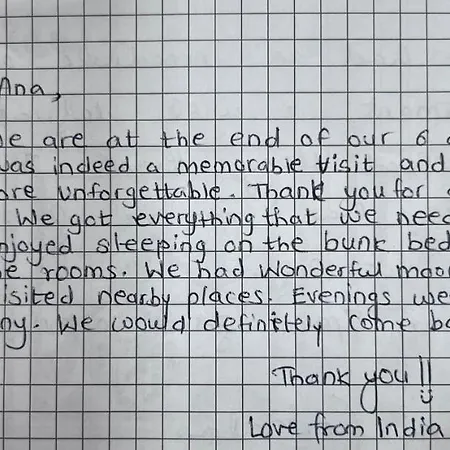 Ana,
e are at the end of our 6
was indeed a memorable visit and
ore unforgettable. Thank you for
We got everything that we need
njoyed sleeping on the bunk bed
e rooms. We had wonderful moo
isited nearby places. Evenings we
ny. We would definitely come ba
Thank you!!
Love from India